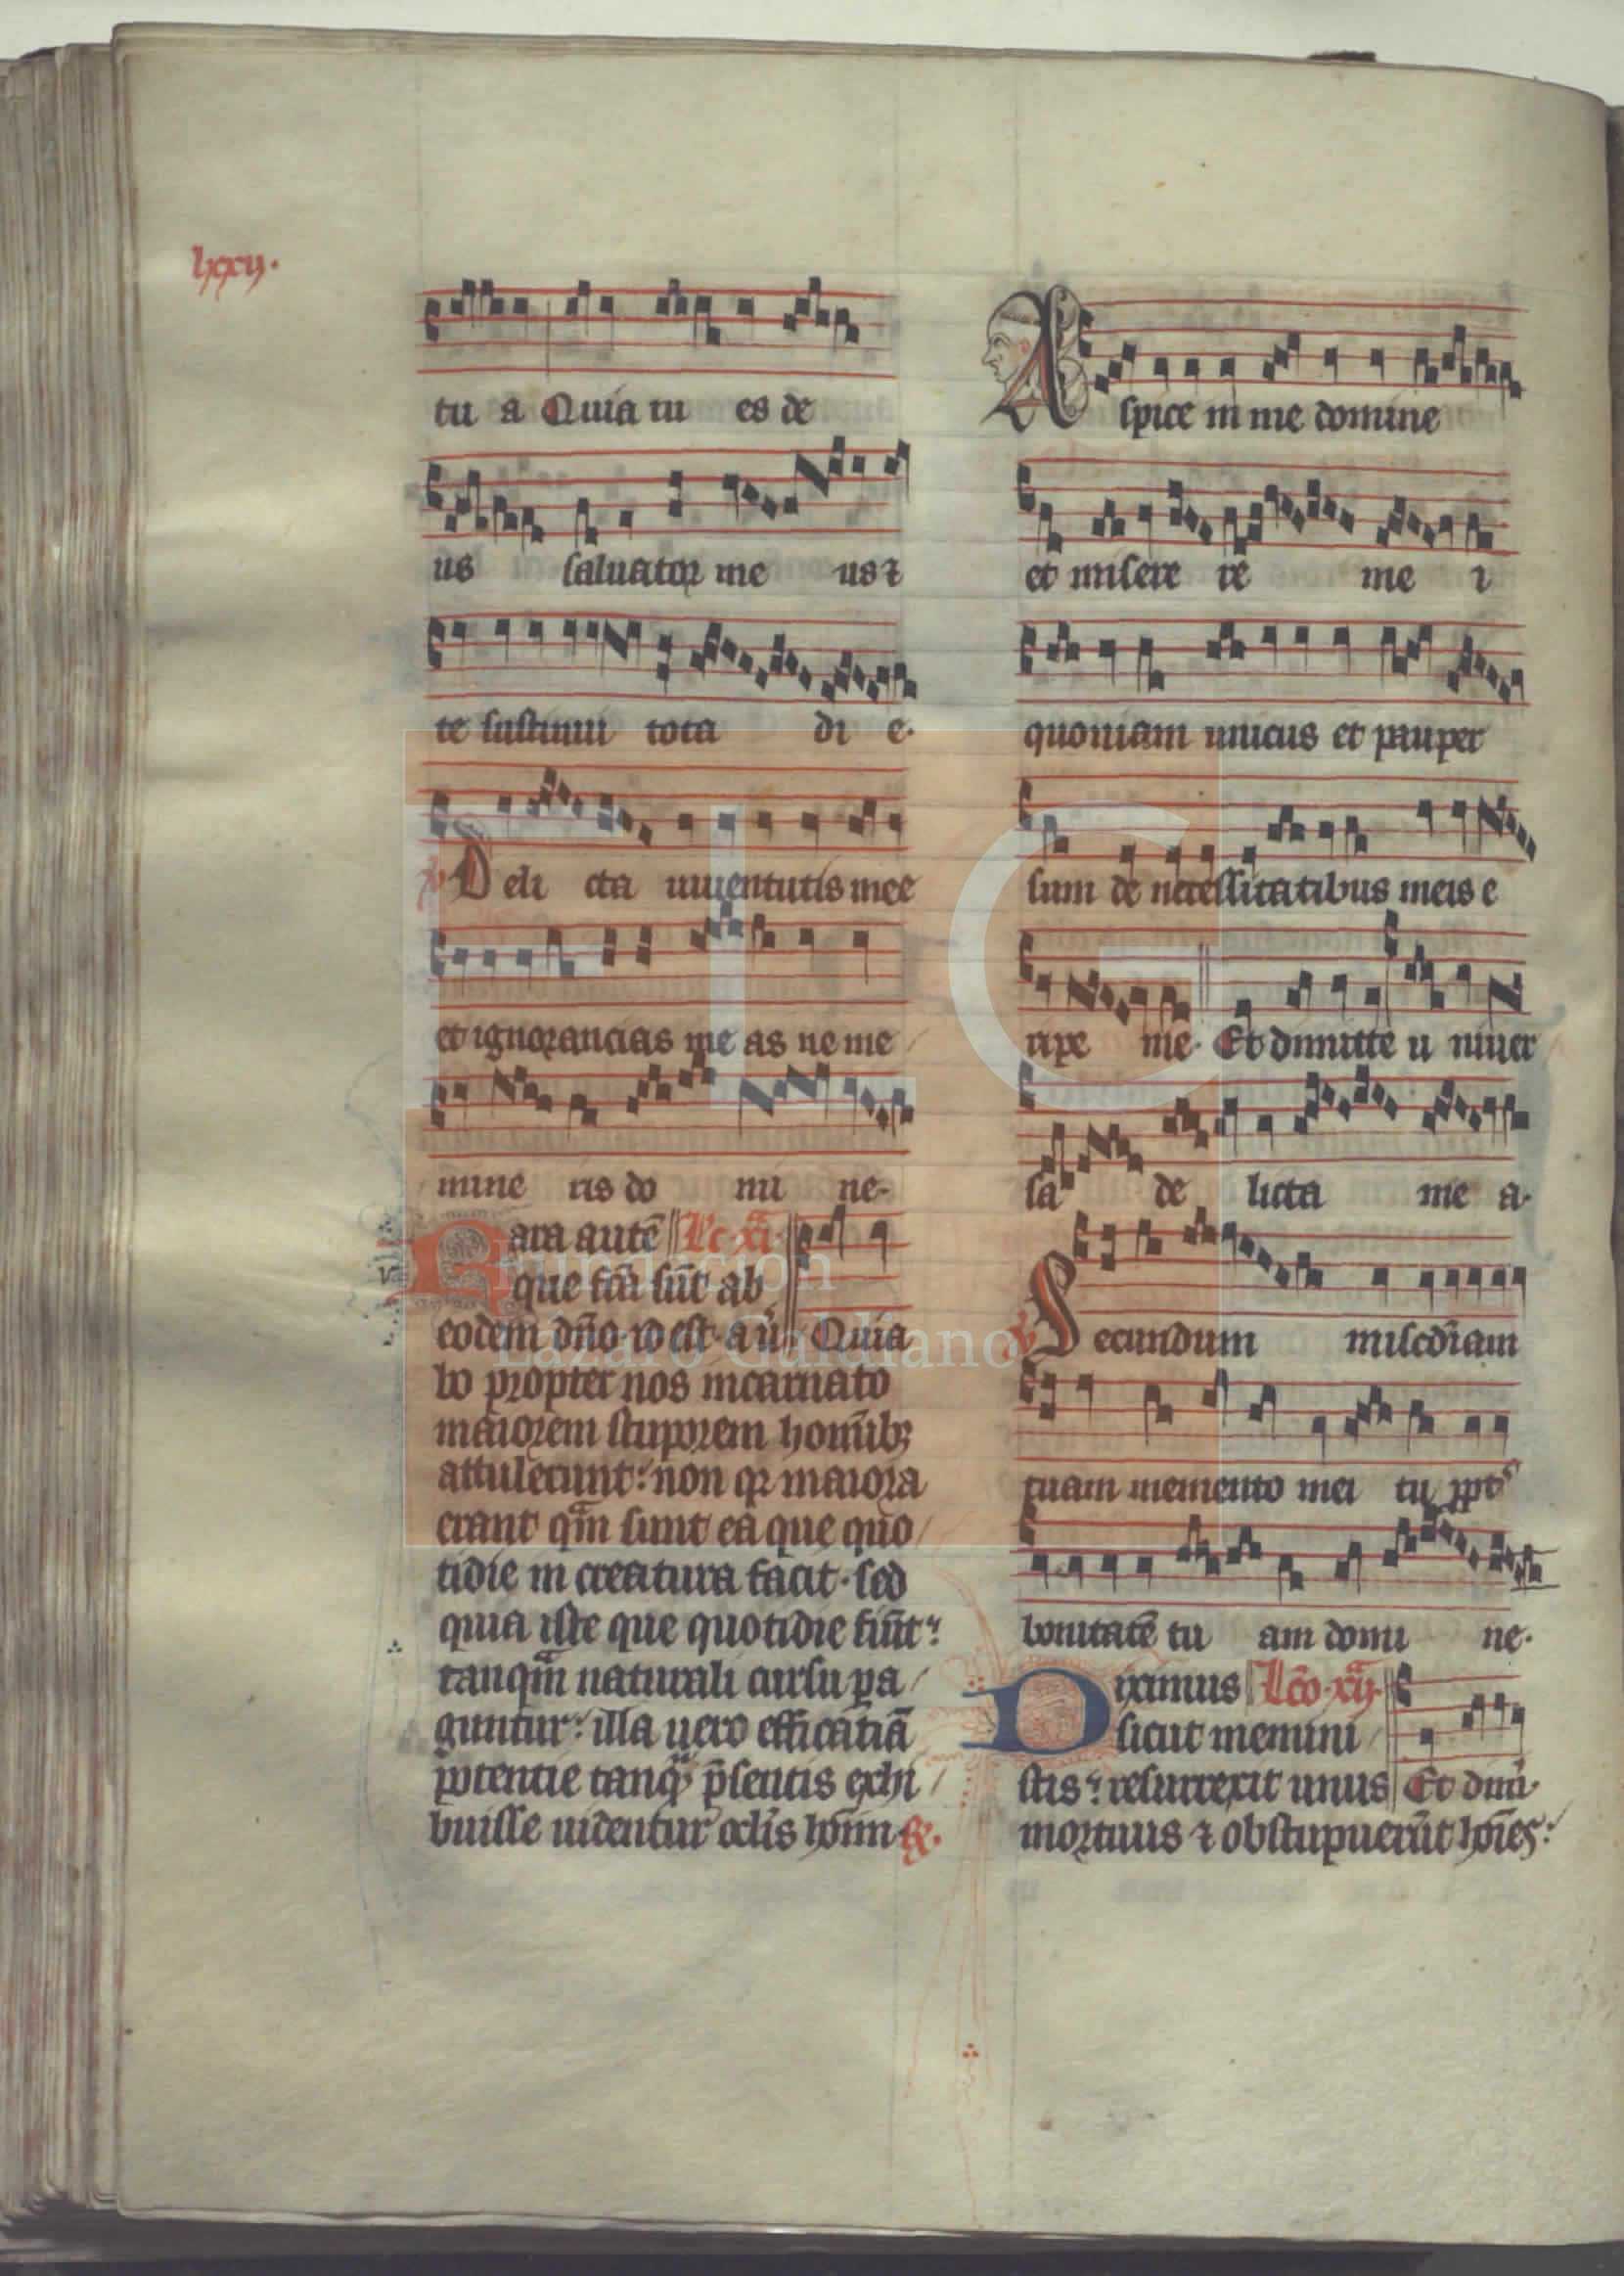 lxxij.
tu a Quia tu es de
us saluator me us ⁊
te sustinui tota di e.
℣ Deli cta iuuentutis mee
et ignorancias me as ne me
mine ris do mi ne.
Rara autē Lc̄. xi.
que fcā sūt ab
eodem dn̄o. id est. a ū Quia
bo propter nos incarnato
maiorem stuporem homīb;
attulerunt: non qr maiora
erant qm̄ sunt ea que quo
tidie in creatura facit. sed
quia iste que quotidie fiūt:
tanqm̄ naturali cursu pa
guntur: illa uero efficatiā
potentie tanq; p̄sentis exhi
buisse uidentur oclīs hom̄ ℟.
Aspice in me domine
et misere re me i
quoniam unicus et pauper
sum de necessitatibus meis e
ripe me. Et dimitte u niuer
sa de licta me a.
℣ Secundum misc̄diam
tuam memento mei tu ppt
bonitatē tu am domi ne.
Diximus Lc̄o. xij.
sicut memini
stis: resurrexit unus Et dimi.
mortuus ⁊ obstupuerūt hoīes:
Fundación
Lázaro Galdiano
LG